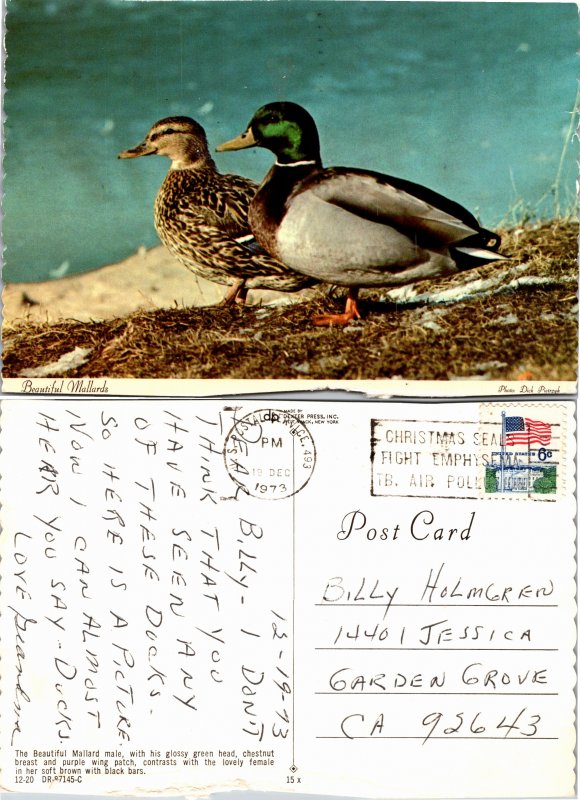 Beautiful Mallards
Photo: Dick Pietrzyk
MADE BY
DEXTER PRESS, INC.
WEST NYACK, NEW YORK
U.S. POSTAL SERVICE 493
PM
19 DEC
1973
CHRISTMAS SEALS
FIGHT EMPHYSEMA
TB. AIR POLL
UNITED STATES
6c
12-19-73
DEAR BILLY - I DON'T
THINK THAT YOU
HAVE SEEN ANY
OF THESE DUCKS.
SO HERE IS A PICTURE.
NOW I CAN ALMOST
HEAR YOU SAY - DUCKS.
LOVE Grandma
Post Card
BILLY HOLMGREN
14401 JESSICA
GARDEN GROVE
CA 92643
The Beautiful Mallard male, with his glossy green head, chestnut
breast and purple wing patch, contrasts with the lovely female
in her soft brown with black bars.
12-20 DR-87145-C
15 x